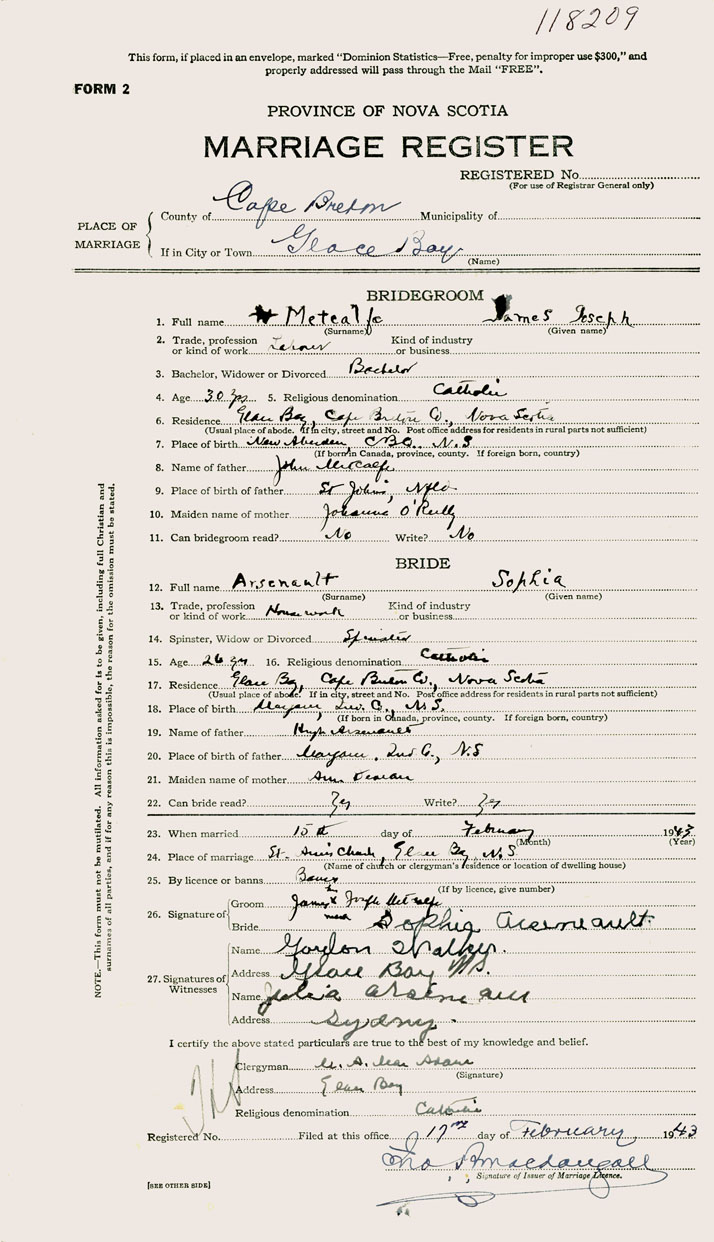 118209
This form, if placed in an envelope, marked "Dominion Statistics—Free, penalty for improper use $300," and
properly addressed will pass through the Mail "FREE".
FORM 2
PROVINCE OF NOVA SCOTIA
MARRIAGE REGISTER
REGISTERED No.
(For use of Registrar General only)
PLACE OF MARRIAGE
County of Cape Breton Municipality of
If in City or Town Glace Bay
(Name)
BRIDEGROOM
1. Full name Metcalfe James Joseph
(Surname) (Given name)
2. Trade, profession or kind of work Labour Kind of industry or business
3. Bachelor, Widower or Divorced Bachelor
4. Age 30 yrs 5. Religious denomination Catholic
6. Residence Glace Bay, Cape Breton Co., Nova Scotia
(Usual place of abode. If in city, street and No. Post office address for residents in rural parts not sufficient)
7. Place of birth New Aberdeen, C.B.Co. N.S
(If born in Canada, province, county. If foreign born, country)
8. Name of father John Metcalfe
9. Place of birth of father St Johns, Nfld.
10. Maiden name of mother Johanna O'Reilly
11. Can bridegroom read? No Write? No
BRIDE
12. Full name Arsenault Sophia
(Surname) (Given name)
13. Trade, profession or kind of work Housework Kind of industry or business
14. Spinster, Widow or Divorced Spinster
15. Age 26 yrs 16. Religious denomination Catholic
17. Residence Glace Bay, Cape Breton Co., Nova Scotia
(Usual place of abode. If in city, street and No. Post office address for residents in rural parts not sufficient)
18. Place of birth Margaree, Inv. C., N.S.
(If born in Canada, province, county. If foreign born, country)
19. Name of father Hugh Arsenault
20. Place of birth of father Margaree, Inv C., N.S
21. Maiden name of mother Ann
22. Can bride read? Yes Write? Yes
23. When married 15th day of February 1943
(Month) (Year)
24. Place of marriage St. Ann's Church, Glace Bay, N.S
(Name of church or clergyman's residence or location of dwelling house)
25. By licence or banns Banns
(If by licence, give number)
26. Signature of
Groom James Joseph Metcalfe
his X mark
Bride Sophia Arseneault.
27. Signatures of Witnesses
Name Gordon Walker.
Address Glace Bay N.S.
Name Julia Arseneau
Address Sydney.
I certify the above stated particulars are true to the best of my knowledge and belief.
Clergyman M. A. Mac Adam
(Signature)
Address Glace Bay
Religious denomination Catholic
Registered No. Filed at this office 17 day of February 1943
MacDougall
Signature of Issuer of Marriage Licence.
[SEE OTHER SIDE]
NOTE.—This form must not be mutilated. All information asked for is to be given, including full Christian and
surnames of all parties, and if for any reason this is impossible, the reason for the omission must be stated.